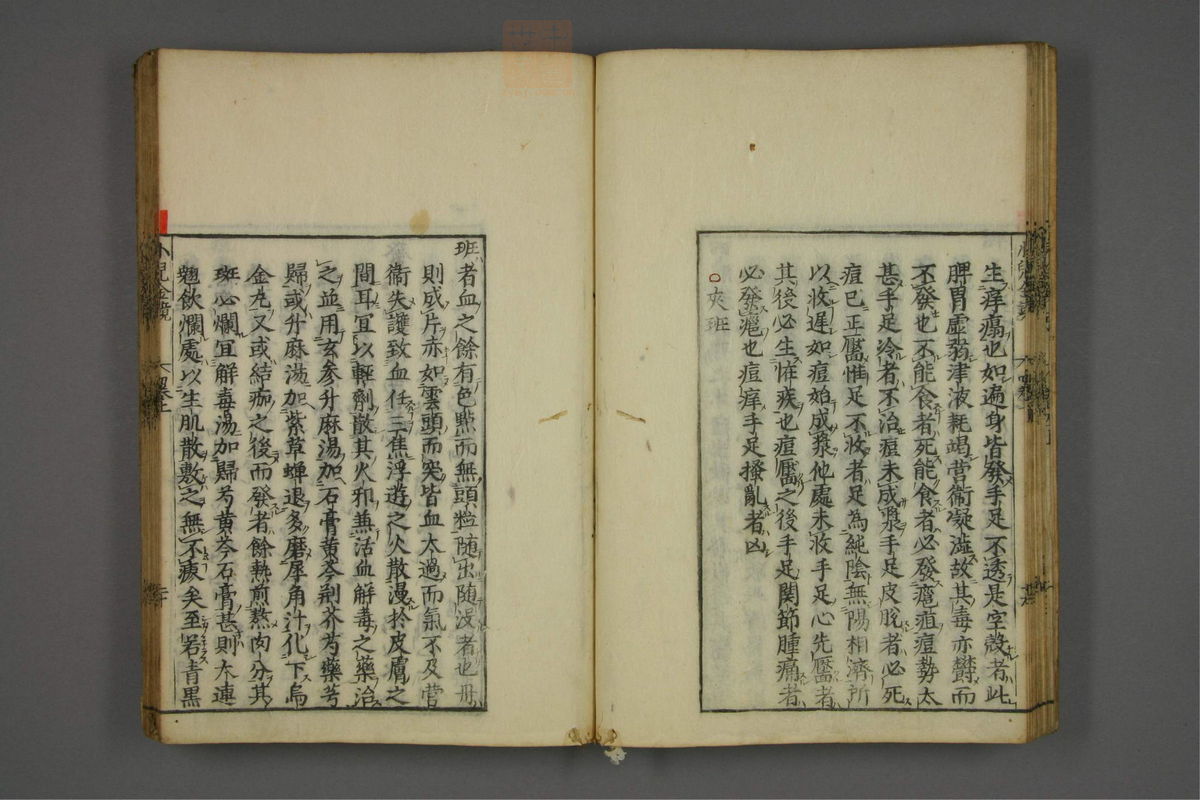 生痒瘍也如遍身皆發手足不透是空殼者此
脾胃虛弱津液耗竭營衞凝澁故其毒亦欝而
不發也不能食者死能食者必發癰疽痘勢太
甚手足冷者不治痘未成漿手足皮脫者必死
痘已正靨惟足不收者足為純陰無陽相濟所
以收遲如痘始成漿他處未收手足心先靨者
其後必生惟疾也痘靨之後手足關節腫痛者
必發癰也痘痒手足搔亂者凶
○夾班
班者血之餘有色㸃而無頭粒随出随沒者也毋
則成片亦如雲頭而突皆血太過而氣不及營
衞失護致血任三焦浮遊之火散漫扵皮膚之
間耳宜以輕劑散其火邪兼活血解毒之藥治
之並用玄參升麻湯加石膏黄芩荆芥芍藥芎
歸或升麻湯加紫草蟬退多磨犀角汁化下烏
金丸又或結痂之後而發者餘熱煎熬肉分其
班必爛宜解毒湯加歸芍黄芩石膏甚則大連
翹飲爛處以生肌散敷之無不痊矣至若青黑
小兒金鏡